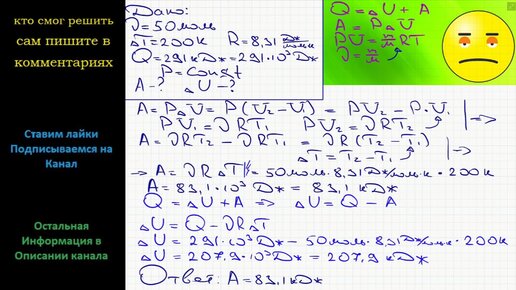 кто смог решить
сам пишите в
комментариях
Ставим лайки
Подписываемся на
Канал
Остальная
Информация в
Описании канала
Дано:
ν=50моль
ΔT=200К R=8,31 Дж/моль·К
Q=291кДж=291·10³Дж
P=const
A-? ΔU-?
Q=ΔU+A
A=PΔV
PV=m/M RT
ν=m/M
A=PΔV=P(V₂-V₁)=PV₂-P·V₁ |→
PV₁=νRT₁ PV₂=νRT₂
A=νRT₂-νRT₁=νR(T₂-T₁) |→
ΔT=T₂-T₁
→A=νRΔT=50моль·8,31Дж/моль·К·200К
A=83,1·10³Дж=83,1кДж
Q=ΔU+A → ΔU=Q-A
ΔU=Q-νRΔT
ΔU=291·10³Дж-50моль·8,31Дж/моль·К·200К
ΔU=207,9·10³Дж=207,9кДж
Ответ: A=83,1кДж